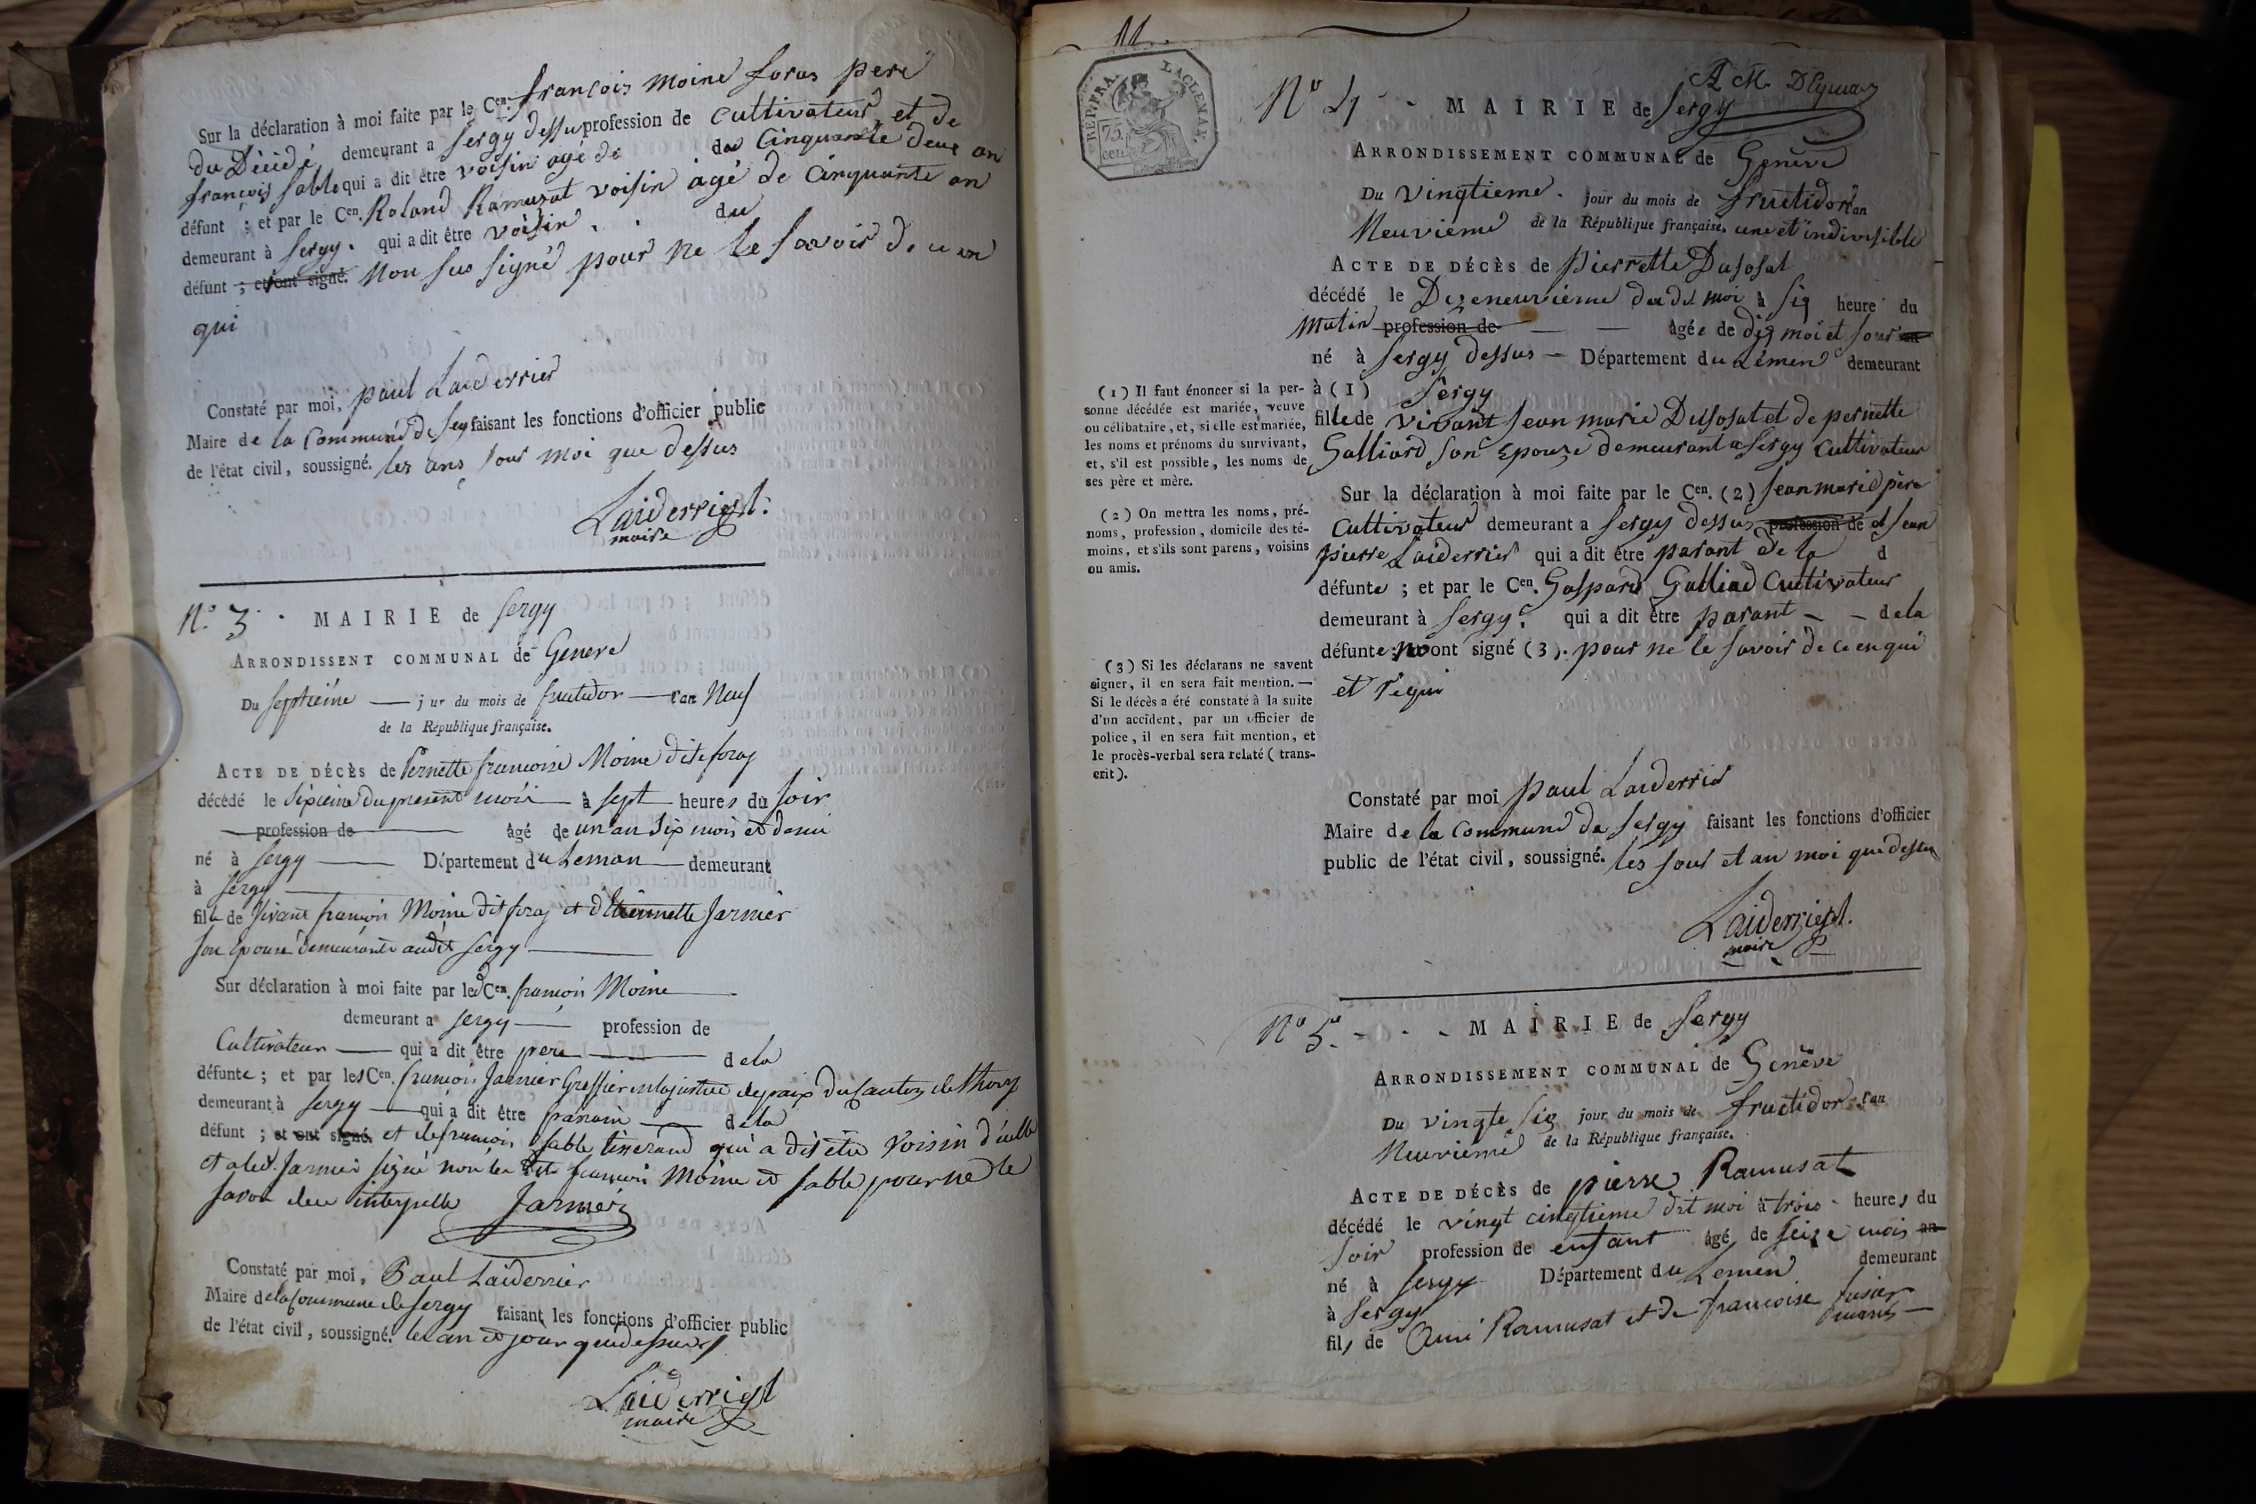 Sur la déclaration à moi faite par le Cen. françois moine foras pere
du Décédé demeurant a Sergy dessu profession de cultivateur et de
françois sable qui a dit être voisin agé de du Cinquante deux an
défunt ; et par le Cen. Roland Ramusat voisin agé de Cinquante an
demeurant à Sergy. qui a dit être voisin. du
défunt ; et ont signé. Non sus signé pour ne le savoir de
qui
Constaté par moi, paul Laiderrier
Maire de la Commune de faisant les fonctions d'officier public
de l'état civil, soussigné. les ans jour moi que dessus
Laiderrier
maire
No. 3. MAIRIE de Sergy
ARRONDISSENT COMMUNAL de Geneve
Du septieme jur du mois de fructidor l'an Neuf
de la République française.
ACTE DE DÉCÈS de Pernette francoise Moine dite foraz
décédé le sixieme du present mois à sept heures du soir
profession de âgé de un an six mois et demi
né à Sergy Département du Leman demeurant
à Sergy
file de vivant françois Moine dit foraz et d'Etiennette Jarnier
son epouse demeurants audit Sergy
Sur déclaration à moi faite par led Cen. françois Moine
demeurant a Sergy profession de
Cultivateur qui a dit être pere de la
défunte ; et par les Cen. françois Jarnier Greffier en la justice de paix du Canton de Thoiry
demeurant à Sergy qui a dit être parain de la
défunt ; et ont signé. et de françois sable tisserand qui a dit etre voisin d'icelle
et a led. Jarnier signé non les dits françois Moine et sable pour ne le
savoir de ce interpellé Jarnier
Constaté par moi, Paul Laiderrier
Maire de la Commune de Sergy faisant les fonctions d'officier public
de l'état civil, soussigné. les an et jour que dessus
Laiderrier
maire
REP. FRA. LAC LEMAN.
75
cen
No 4 MAIRIE de Sergy
ARRONDISSEMENT COMMUNAL de Genève
Du vingtieme jour du mois de fructidor l'an
Neuvieme de la République française. une et indivisible
ACTE DE DÉCÈS de pierrette Dusosat
décédé le Dezeneuvieme du dit moi à six heure du
Matin profession de âgée de dix moi et jour an
né à Sergy dessus Département du Lémen demeurant
à (1) Sergy
fille de vivant Jean marie Dusosat et de pernette
Galliard son Epouze demeurant a Sergy Cultivateur
(1) Il faut énoncer si la per-
sonne décédée est mariée, veuve
ou célibataire, et, si elle est mariée,
les noms et prénoms du survivant,
et, s'il est possible, les noms de
ses père et mère.
Sur la déclaration à moi faite par le Cen. (2) Jean marie père
Cultivateur demeurant a Sergy dessus profession de et Jean
pierre Laiderrier qui a dit être parant de la d
défunte ; et par le Cen. Gaspard Galliad Cultivateur
demeurant à Sergy. qui a dit être parant de la
défunte. ont signé (3). pour ne le savoir de ce en qui
et requi
(2) On mettra les noms, pré-
noms, profession, domicile des té-
moins, et s'ils sont parens, voisins
ou amis.
(3) Si les déclarans ne savent
signer, il en sera fait mention. —
Si le décès a été constaté à la suite
d'un accident, par un officier de
police, il en sera fait mention, et
le procès-verbal sera relaté (trans-
crit).
Constaté par moi paul Laiderrier
Maire de la Commune de Sergy faisant les fonctions d'officier
public de l'état civil, soussigné. les jour et an moi que dessus
Laiderrier
maire
No 5. MAIRIE de Sergy
ARRONDISSEMENT COMMUNAL de Genève
Du vingte six jour du mois de fructidor l'an
Neuvieme de la République française.
ACTE DE DÉCÈS de pierre Ramusat
décédé le vingt cinqtieme dit moi à trois heures du
soir profession de enfant âgé de seize mois an
né à Sergy Département du Lemen demeurant
à Sergy
fils de Ami Ramusat et de francoise